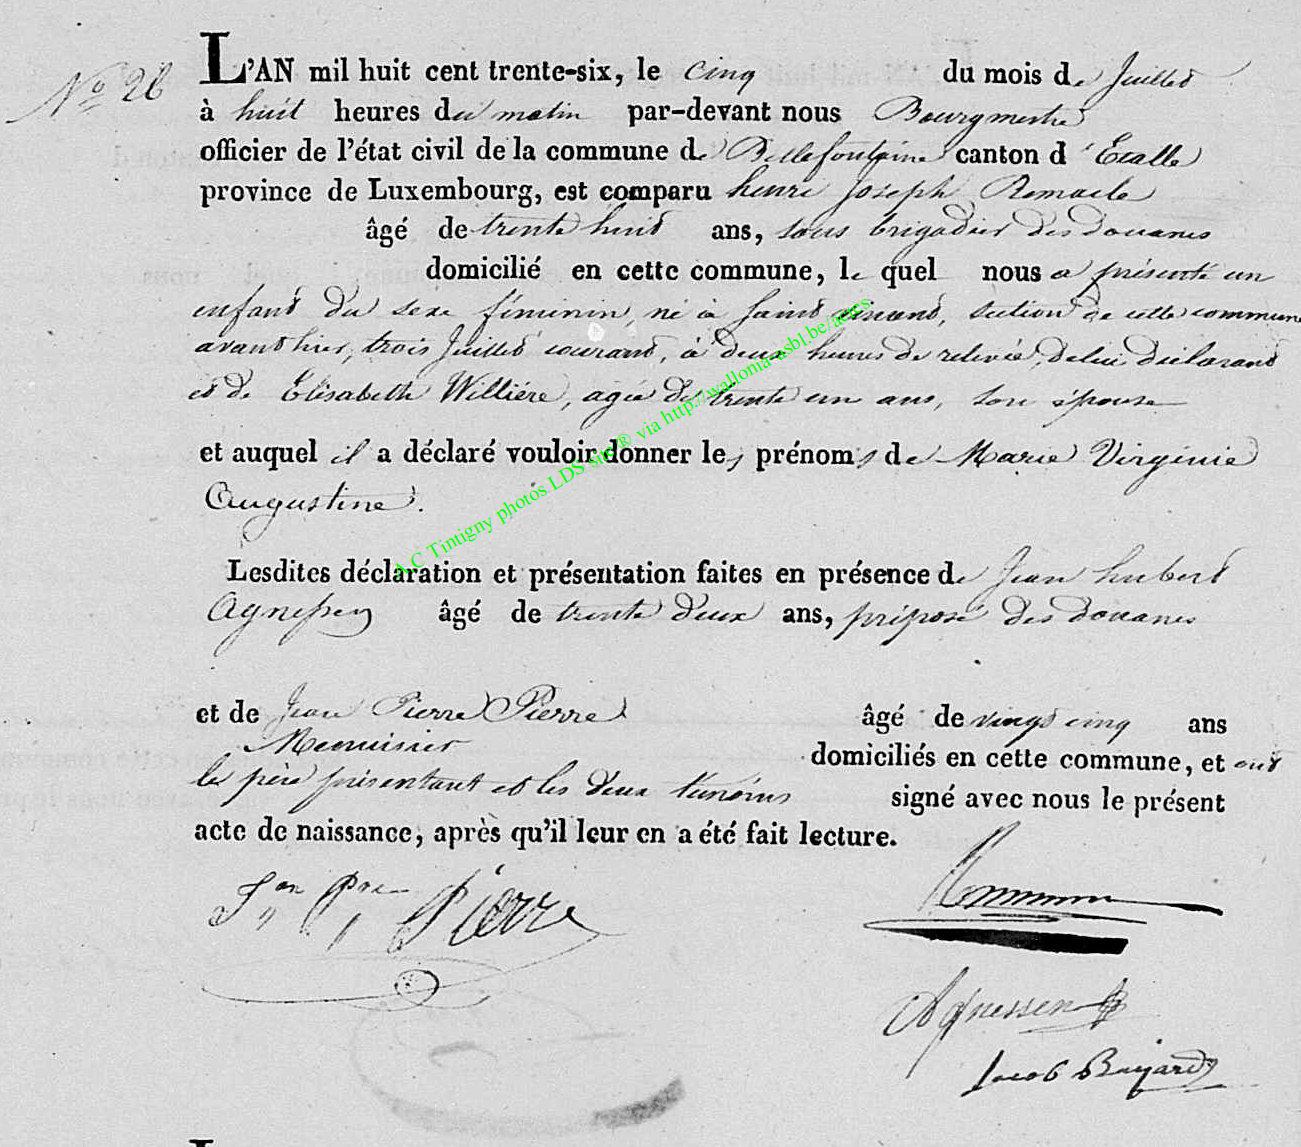 N° 26
L'AN mil huit cent trente-six, le cinq du mois de Juillet
à huit heures du matin par-devant nous Bourgmestre
officier de l'état civil de la commune de Bellefontaine canton d'Etalle
province de Luxembourg, est comparu henri Joseph Remacle
âgé de trente huit ans, sous brigadier des douanes
domicilié en cette commune, le quel nous a présenté un
enfant du sexe féminin, né à Saint vincent, section de cette commune
avant hier, trois Juillet courant, à deux heures de relevée, de lui déclarant
et de Elisabeth Willière, agée de trente un ans, son épouse
et auquel il a déclaré vouloir donner les prénoms de Marie Virginie
Augustine.
Lesdites déclaration et présentation faites en présence de Jean hubert
Agnessen âgé de trente deux ans, préposé des douanes
et de Jean Pierre Pierre âgé de vingt cinq ans
Menuisier domiciliés en cette commune, et ont
le père présentant et les deux témoins signé avec nous le présent
acte de naissance, après qu'il leur en a été fait lecture.
Jn Pre Pierre
Agnessen
Jacob Bayard
A.C Tintigny photos LDS site® via http://wallonia-asbl.be/actes